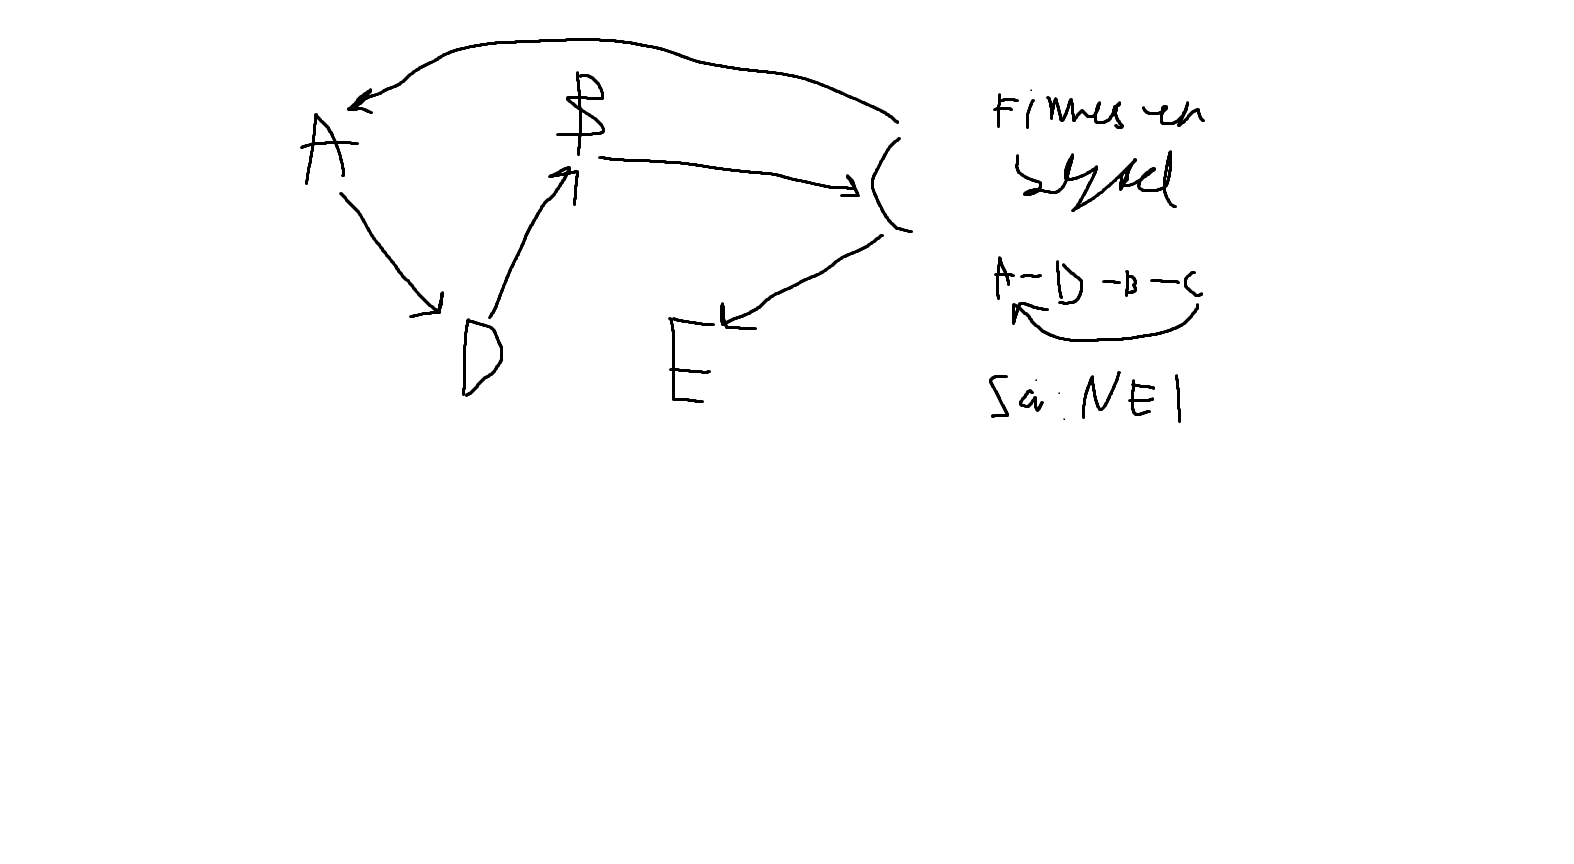 A
B
C
D
E
Finnes en
sykel
A - D - B - C
Så: NEI